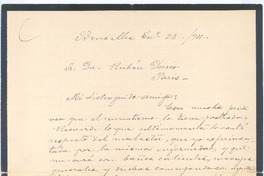 Bruxelles En.º 28/911.
Sr. Dn. Rubén Darío
Paris
Mi distinguido amigo:
Con mucha pena
veo que el reumatismo lo tiene postrado.
Recuerdo lo que últimamente le conté
respecto del
por la misma enfermedad y que
con baños calientes, masajes
generales y duchas